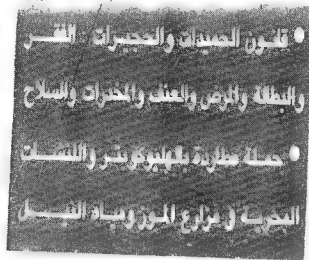 • قانون الحميدات والحجيرات الفقر
والبطالة والمرض والعنف والمخدرات والسلاح
• حملة مطاردة بالهليوكوبتر واللنشات
البحرية في مزارع الموز ومياه النيل